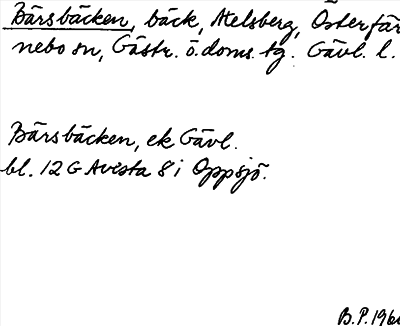 Bärsbäcken, bäck, Åtelsberg, Österfär
nebo sn, Gästr. ö. doms. tg. Gävl. l.
Bärsbäcken, ek Gävl.
bl. 12 G Avesta 8 i Oppsjö.
B.P. 196